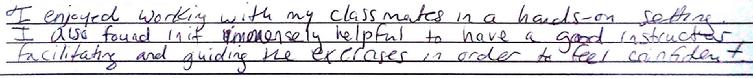 I enjoyed working with my classmates in a hands-on setting.
I also found init immensely helpful to have a good instructor
facilitating and guiding the exercises in order to feel confident